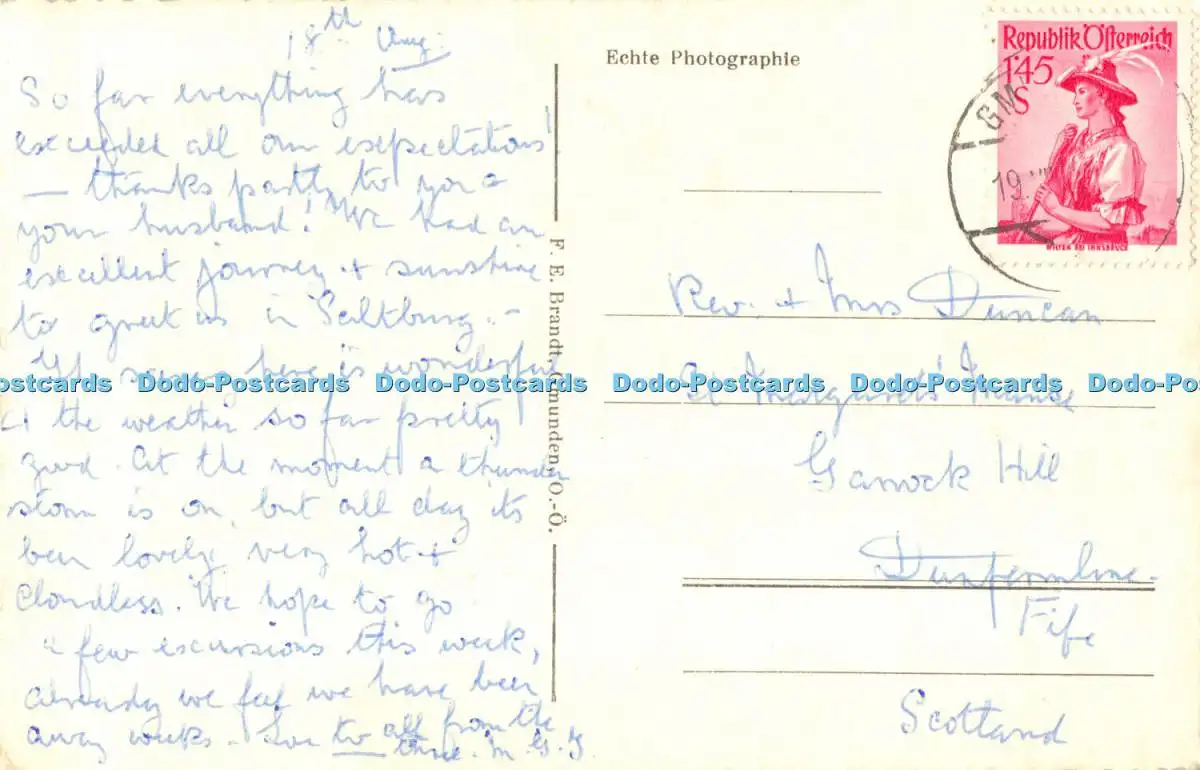 18th Aug.
So far everything has
exceeded all our expectations!
— thanks partly to you &
your husband! We had an
excellent journey & sunshine
to greet us in Saltburg. -
here is wonderful
& the weather so far pretty
good. At the moment a thunder
storm is on, but all day its
been lovely, very hot &
cloudless. We hope to go
a few excursions this week,
already we feel we have been
away weeks - Love to all from the
three. M. G. J.
Echte Photographie
F. E. Brandt, Gmunden, O.-Ö.
Republik Österreich
1'45
S
WILTEN BEI INNSBRUCK
GM
19.
Rev. & Mrs Duncan
St Margaret's Manse
Garrock Hill
Dunfermline.
Fife
Scotland
Dodo-Postcards Dodo-Postcards Dodo-Postcards Dodo-Postcards Dodo-Postcards